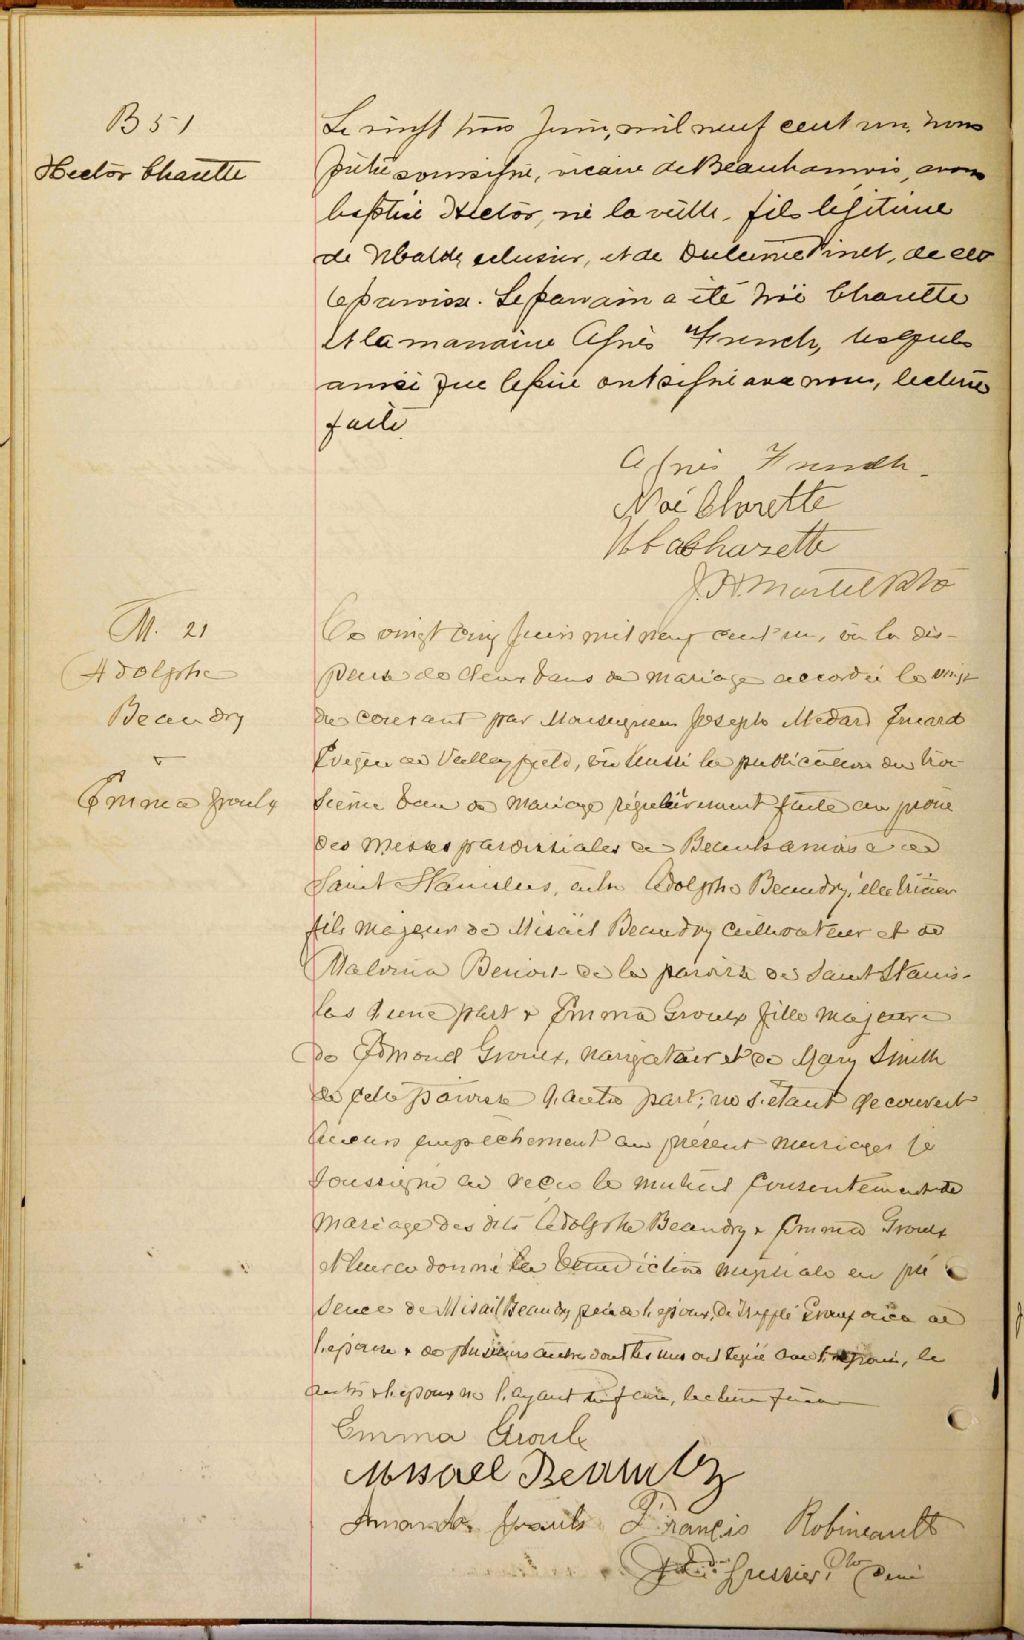 B 51
Hector Charette
Le vingt trois Juin, mil neuf cent un, nous
prêtre soussigné, vicaire de Beauharnois, avons
baptisé Hector, né la veille, fils légitime
de Ubalde, éclusier, et de Pinet, de cet
te paroisse. Le parrain a été Noé Charette
et la marraine Agnès French, lesquels
ainsi que le père ont signé avec nous, lecture
faite
Agnès French
Noé Charette
Uba Charette
J. H. Martel Ptre
M. 21
Adolphe
Beaudry
&
Emma Groulx
Le vingt cinq Juin mil neuf cent un, vu la dis-
pense de deux bans de mariage accordée le vingt
du courant par Monseigneur Joseph Médard Émard
Évêque de Valleyfield, vu aussi la publication du troi
sième ban de mariage régulièrement faite au prône
des messes paroissiales de Beauharnois & de
Saint Stanislas, entre Adolphe Beaudry, électricien
fils majeur de Misaël Beaudry cultivateur et de
Malvina Benoit de la paroisse de Saint Stanis-
las d'une part & Emma Groulx fille majeure
de Edmond Groulx, navigateur et de Mary Smith
de cette paroisse d'autre part; ne s'étant découvert
aucun empêchement au présent mariage je
soussigné ai reçu le mutuel consentement de
mariage des dits Adolphe Beaudry & Emma Groulx
et leur ai donné la bénédiction nuptiale en pré
sence de Misaël Beaudry, père de l'époux, de Groulx de
l'épouse & de plusieurs autres dont les uns ont signé avec l'épouse, les
autres & l'époux ne l'ayant pu faire, lecture faite
Emma Groulx
Misael Beaudry
Amanda Groulx Francis Robineault
Lussier, Ptre Curé